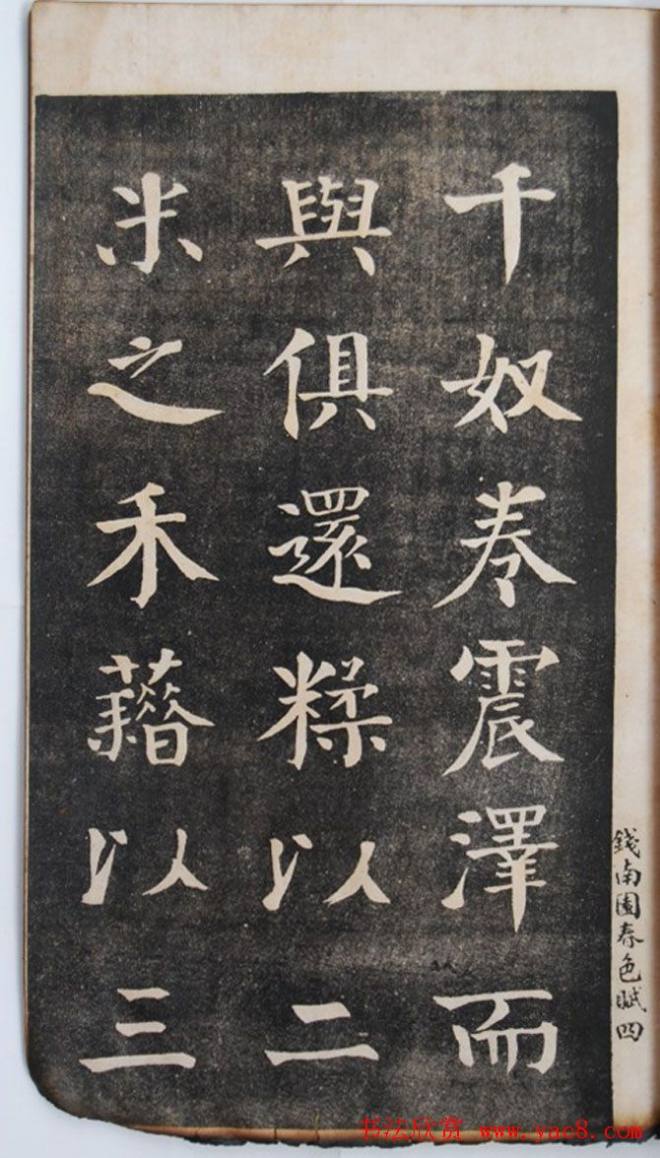 千奴卷震澤而
與俱還糅以二
米之禾藉以三
錢南園春色賦四
书法欣赏 www.yac8.com